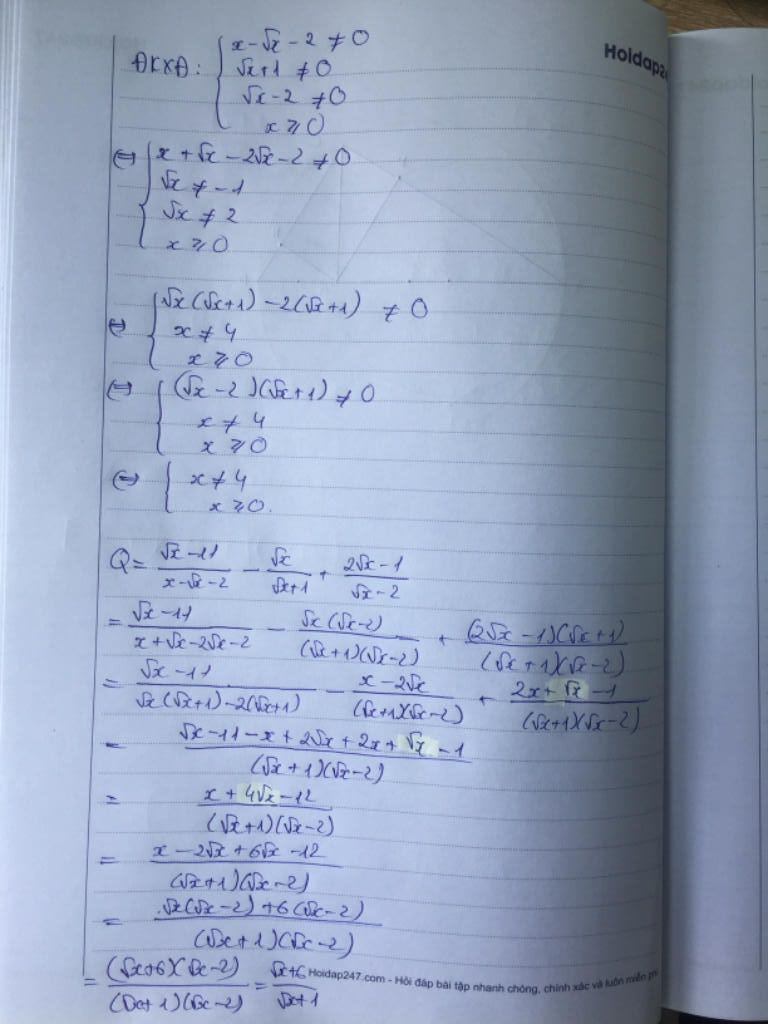 Holdap24
ĐKXĐ: { x - √x - 2 ≠ 0
√x + 1 ≠ 0
√x - 2 ≠ 0
x ⩾ 0
⇔ { x + √x - 2√x - 2 ≠ 0
√x ≠ -1
√x ≠ 2
x ⩾ 0
⇔ { √x(√x+1) - 2(√x+1) ≠ 0
x ≠ 4
x ⩾ 0
⇔ { (√x - 2)(√x+1) ≠ 0
x ≠ 4
x ⩾ 0
⇔ { x ≠ 4
x ⩾ 0.
Q = (√x - 11)/(x - √x - 2) - √x/(√x+1) + (2√x - 1)/(√x - 2)
= (√x - 11)/(x + √x - 2√x - 2) - √x(√x-2)/((√x+1)(√x-2)) + (2√x - 1)(√x+1)/((√x+1)(√x-2))
= (√x - 11)/(√x(√x+1) - 2(√x+1)) - (x - 2√x)/((√x+1)(√x-2)) + (2x + √x - 1)/((√x+1)(√x-2))
= (√x - 11 - x + 2√x + 2x + √x - 1)/((√x+1)(√x-2))
= (x + 4√x - 12)/((√x+1)(√x-2))
= (x - 2√x + 6√x - 12)/((√x+1)(√x-2))
= (√x(√x-2) + 6(√x-2))/((√x+1)(√x-2))
= (√x+6)(√x-2)/((√x+1)(√x-2)) = (√x+6)/(√x+1)
Hoidap247.com - Hỏi đáp bài tập nhanh chóng, chính xác và luôn miễn phí